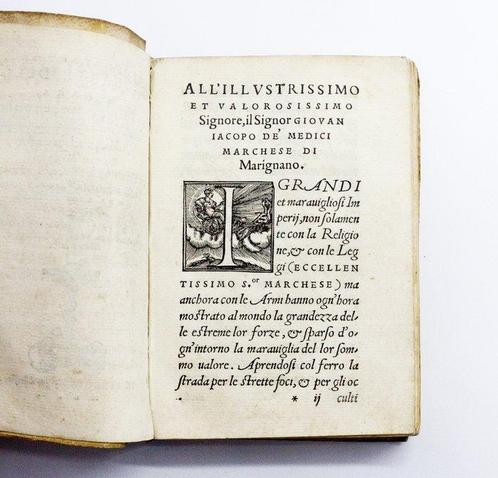 ALL'ILLVSTRISSIMO
ET VALOROSISSIMO
Signore, il Signor GIOVAN
IACOPO DE' MEDICI
MARCHESE DI
Marignano.
I GRANDI
et marauigliosi Im
perij, non solamen
te con la Religio
ne, & con le Leg
gi (ECCELLEN
TISSIMO S.or MARCHESE) ma
anchora con le Armi hanno ogn'hora
mostrato al mondo la grandezza del-
le estreme lor forze, & sparso d'o-
gn'intorno la marauiglia del lor som
mo ualore. Aprendosi col ferro la
strada per le strette foci, & per gli oc
* ij culti